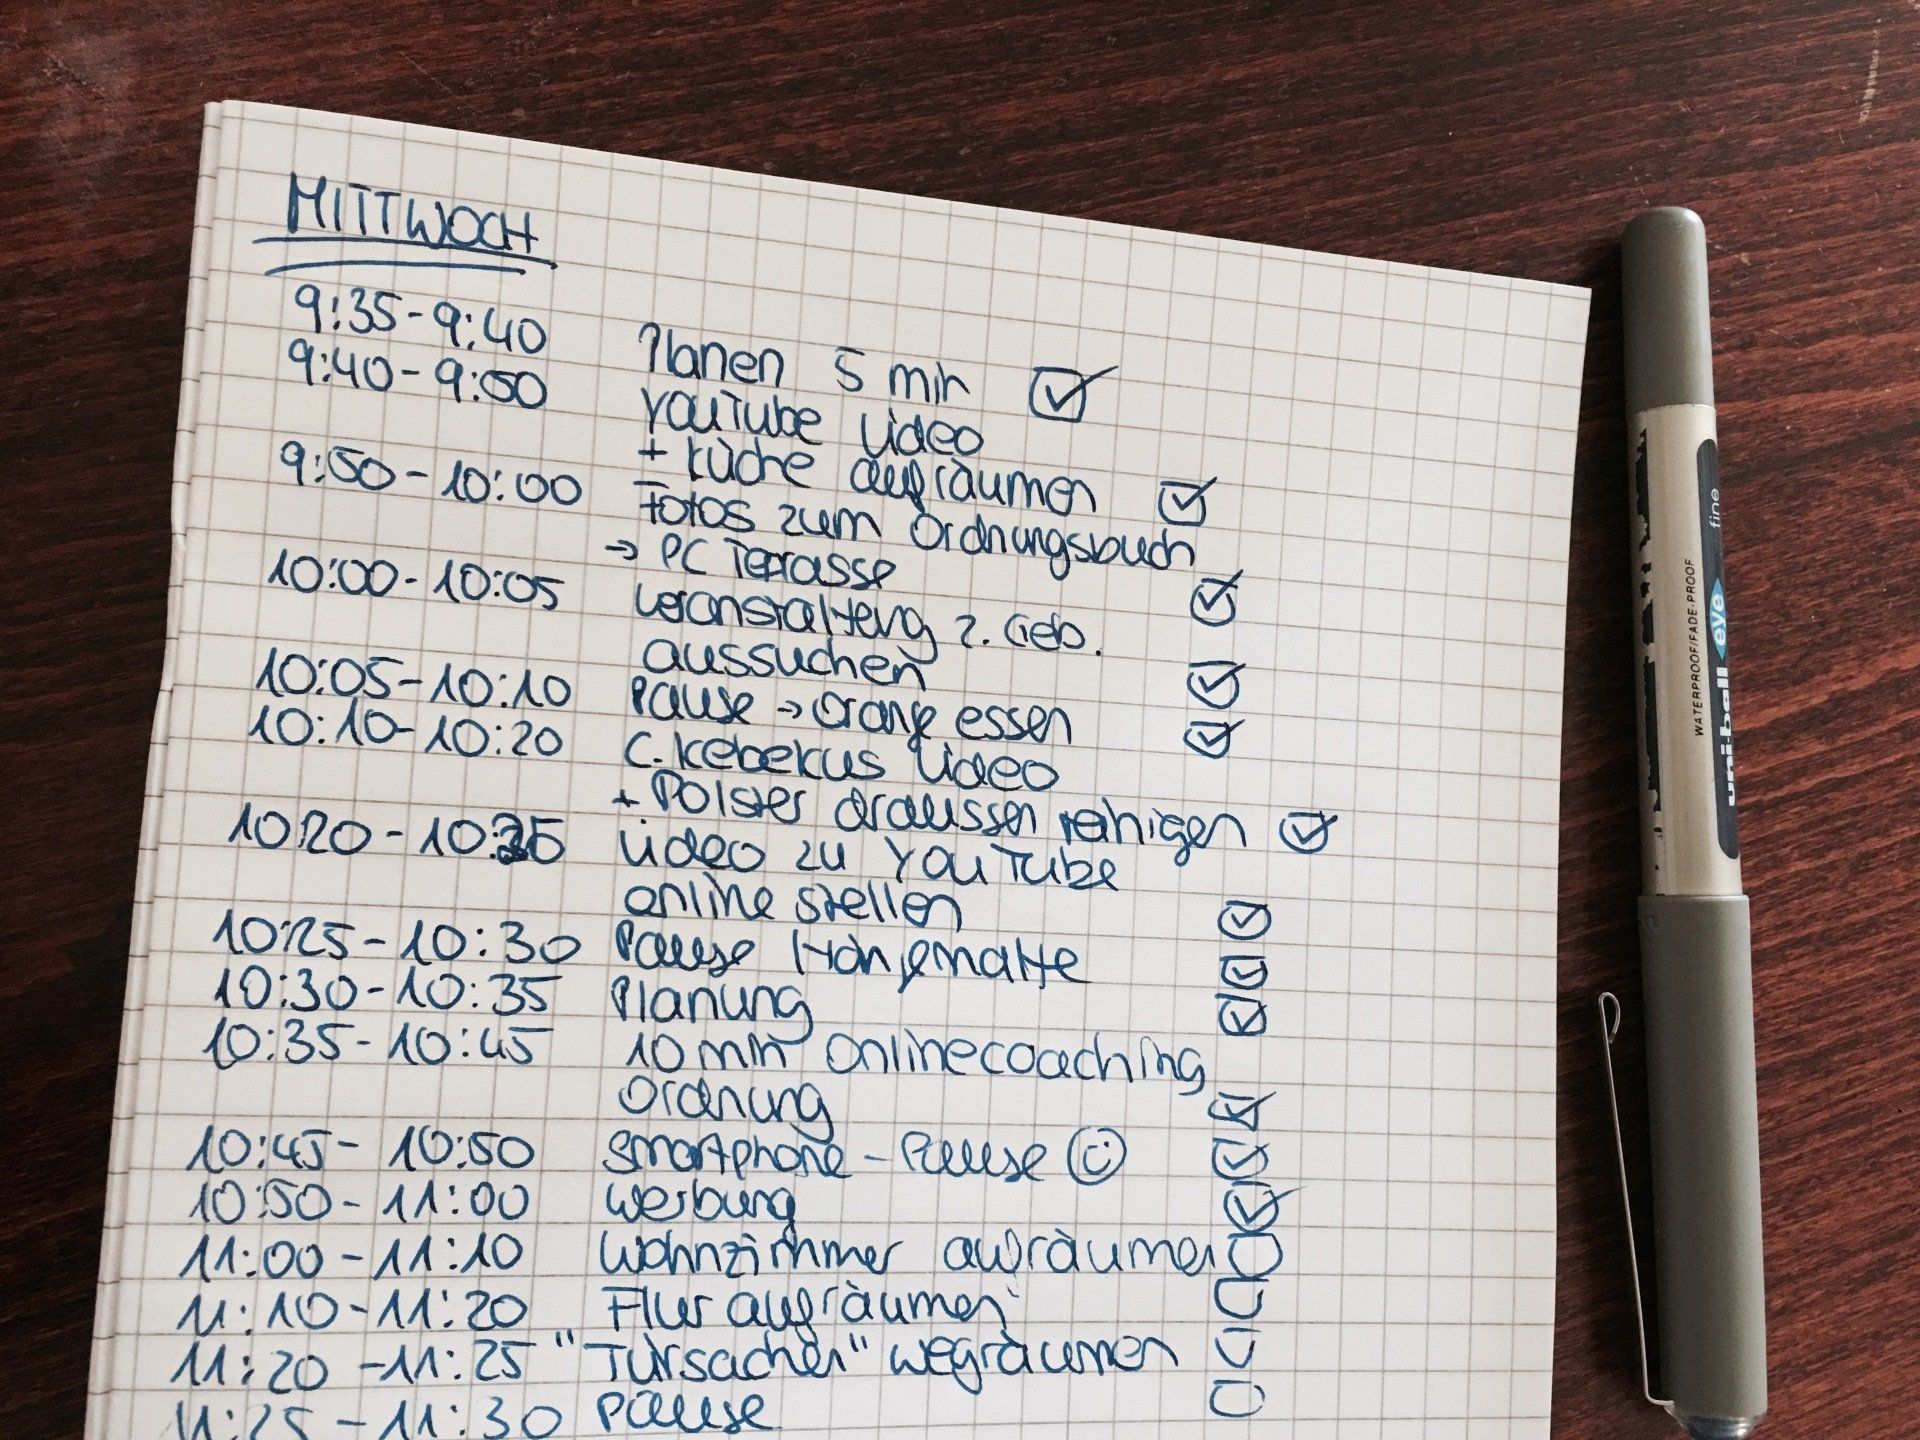 MITTWOCH
9:35-9:40 Planen 5 min
9:40-9:50 YouTube Video
+ Küche aufräumen
9:50-10:00 Fotos zum Ordnungsbuch
→ PC Terrasse
10:00-10:05 Veranstaltung z. Geb.
aussuchen
10:05-10:10 Pause → Orange essen
10:10-10:20 C. Kebekus Video
+ Polster draussen reinigen
10:20-10:25 Video zu YouTube
online stellen
10:25-10:30 Pause Hängematte
10:30-10:35 Planung
10:35-10:45 10 min Onlinecoaching
Ordnung
10:45-10:50 Smartphone-Pause
10:50-11:00 Werbung
11:00-11:10 Wohnzimmer aufräumen
11:10-11:20 Flur aufräumen
11:20-11:25 "Türsachen" wegräumen
11:25-11:30 Pause
uni-ball eye fine
WATERPROOF/FADE-PROOF